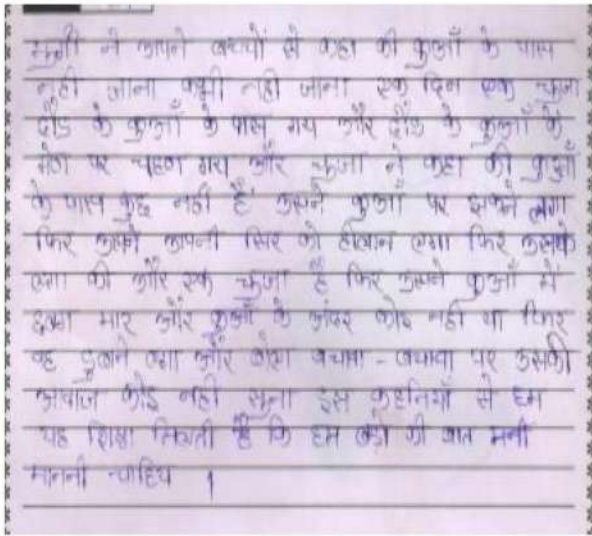 मुर्गी ने अपने बच्चों से कहा की कुआँ के पास
नही जाना कभी नही जाना एक दिन एक चुजा
दौड के कुआँ के पास गय और दौड के कुआँ के
पर चहण गय और चुजा ने कहा की कुआँ
के पास कुछ नहीं है उसने कुआँ पर झकने लगा
फिर उसने अपनी सिर को हीलान लगा फिर उसके
लगा की और एक चुजा है फिर उसने कुआँ में
मार और कुआँ के अंदर कोइ नही था फिर
वह डुबने लगा और बोला बचावा - बचावा पर उसकी
आवाज कोइ नही सुना इस कहनियाँ से हम
यह शिक्षा मिलती है कि हम बडो की बात मनी
माननी चाहिय ।